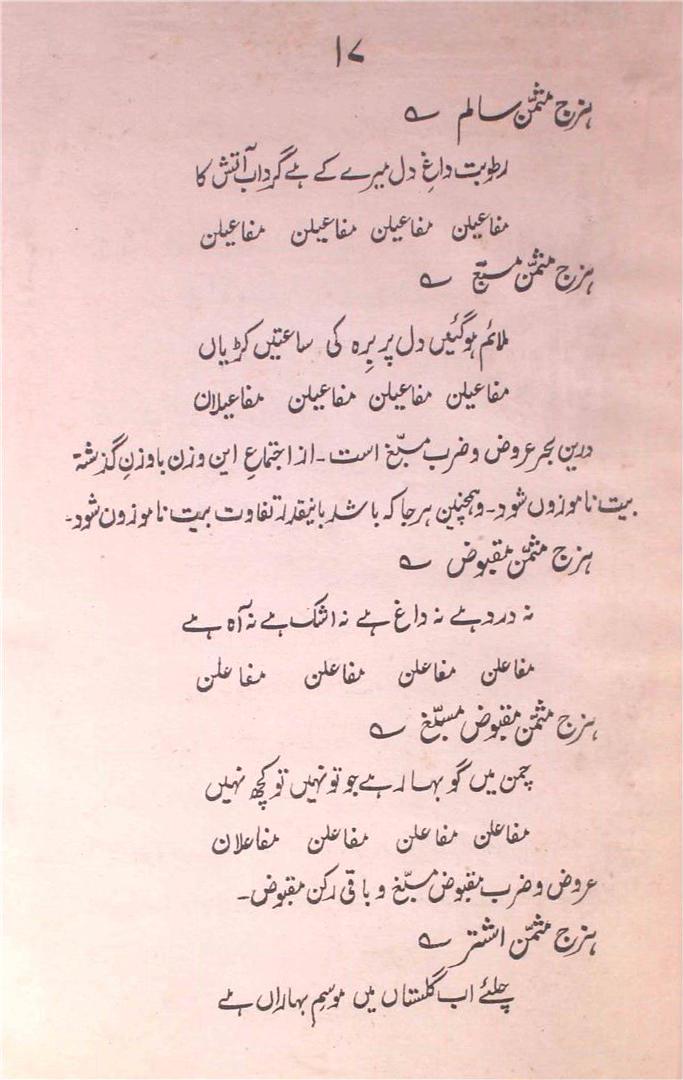 ۱۷
ہزج مثمّن سالم ؎
رطوبت داغِ دل میرے کے ہے گردابِ آتش کا
مفاعیلن مفاعیلن مفاعیلن مفاعیلن
ہزج مثمّن مسبّغ ؎
ملائم ہوگئیں دل پر برِہ کی ساعتیں کڑیاں
مفاعیلن مفاعیلن مفاعیلن مفاعیلان
درین بحر عروض و ضرب مسبّغ است۔ از اجتماعِ این وزن با وزنِ گذشتہ
بیت ناموزوں شود۔ وہمچنین ہر جا کہ باشد باینقدر تفاوت بیت ناموزون شود۔
ہزج مثمّن مقبوض ؎
نہ درد ہے نہ داغ ہے نہ اشک ہے نہ آہ ہے
مفاعلن مفاعلن مفاعلن مفاعلن
ہزج مثمّن مقبوض مسبّغ ؎
چمن میں گو بہار ہے جو تو نہیں تو کچھ نہیں
مفاعلن مفاعلن مفاعلن مفاعلان
عروض و ضرب مقبوض مسبّغ و باقی رکن مقبوض۔
ہزج مثمّن اشتر ؎
چلئے اب گلستاں میں موسمِ بہاراں ہے